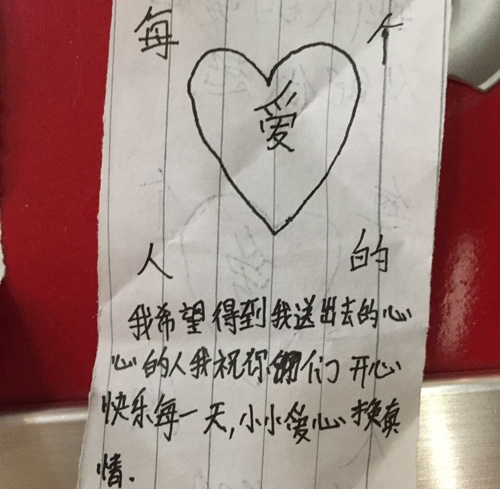 每 个
爱
人 的
我希望得到我送出去的心
心的人我祝你们开心
快乐每一天,小小爱心换真
情.